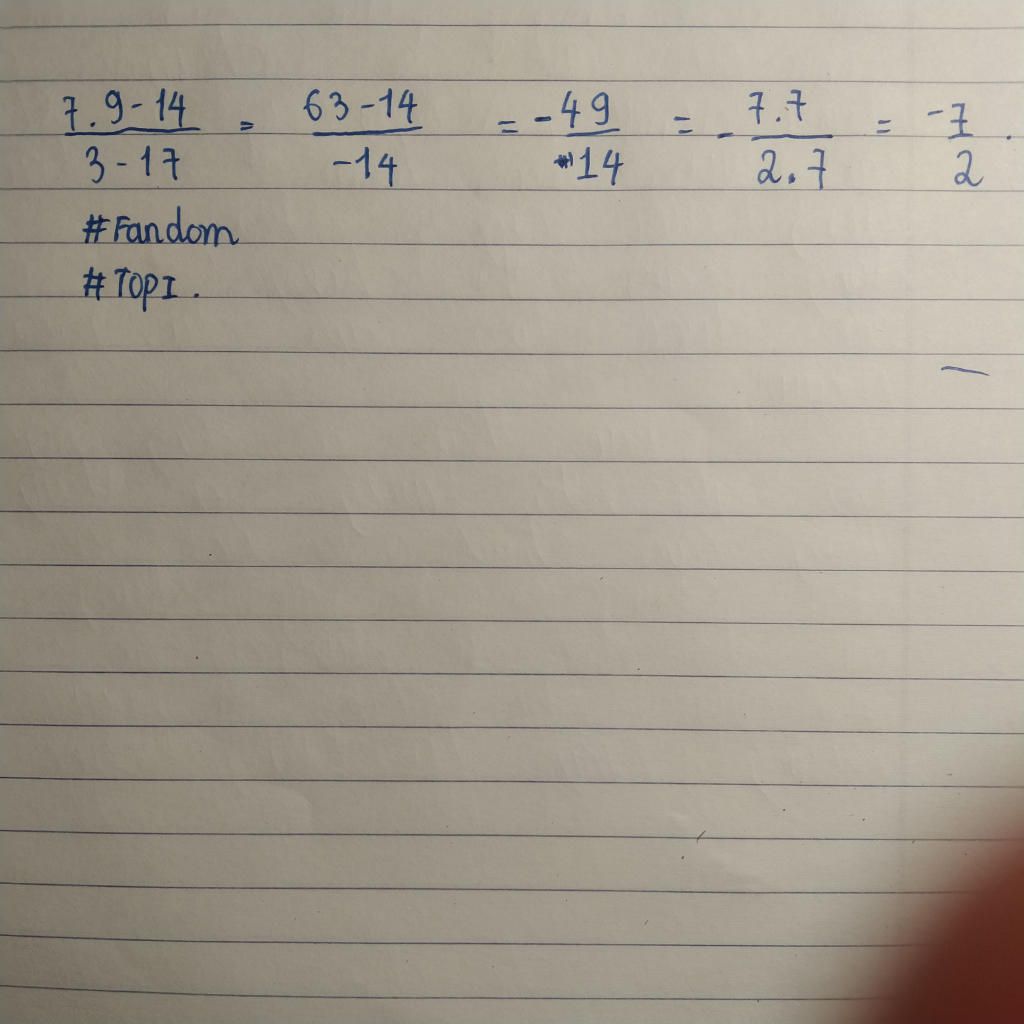 7.9-14/3-17 = 63-14/-14 = -49/14 = -7.7/2.7 = -7/2.
#Fandom
#TOPI.